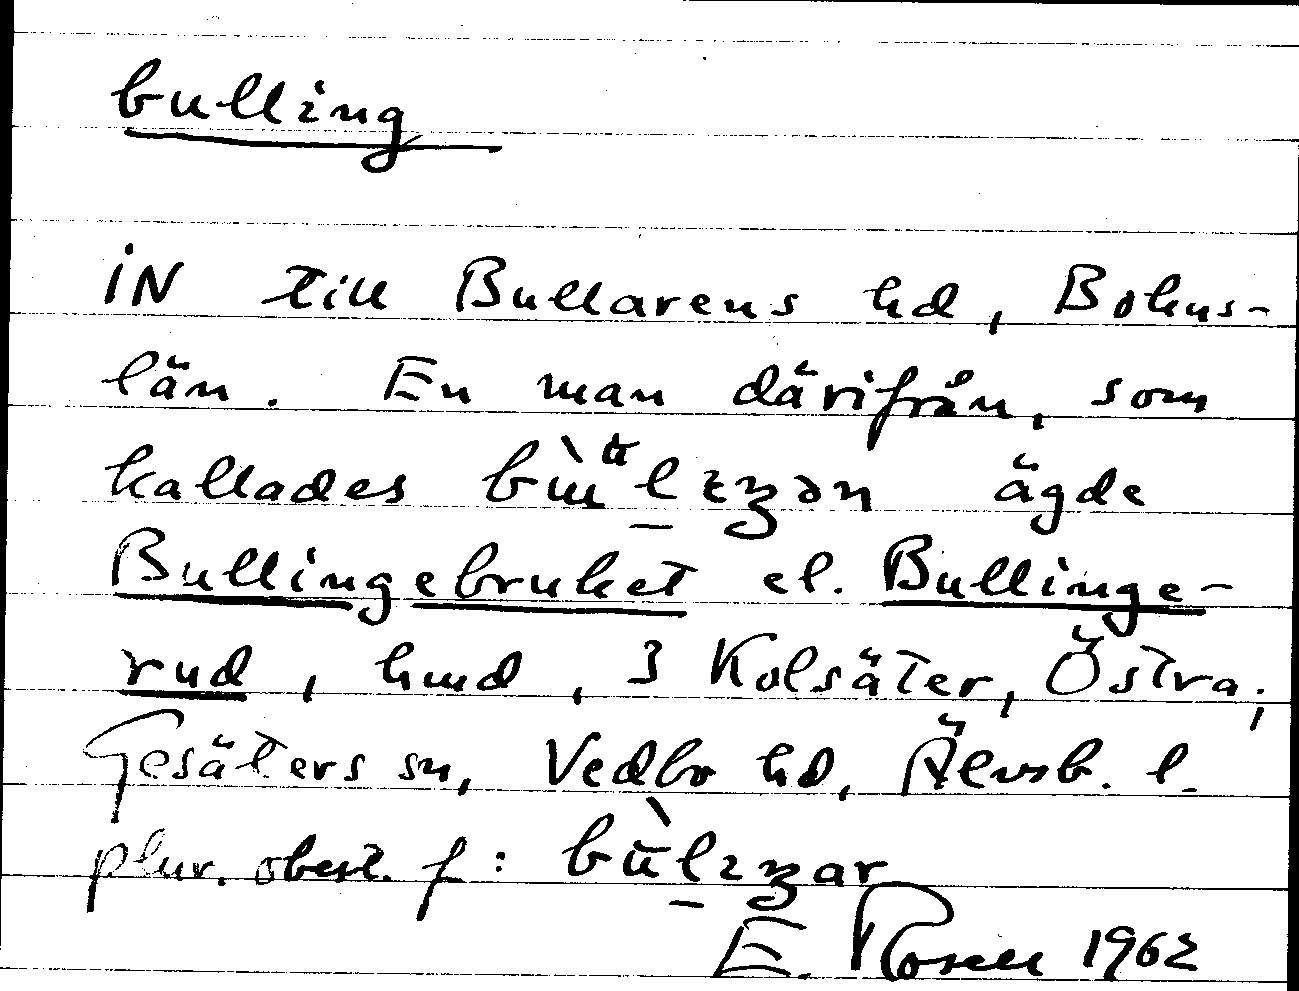 bulling
IN till Bullarens hd, Bohus-
län. En man därifrån, som
kallades ägde
Bullingebruket el. Bullinge-
rud, hmd, 3 Kolsäter, Östra;
Gesäters sn, Vedbo hd, Älvsb. l.
plur. obest. f:
E. Rosell 1962